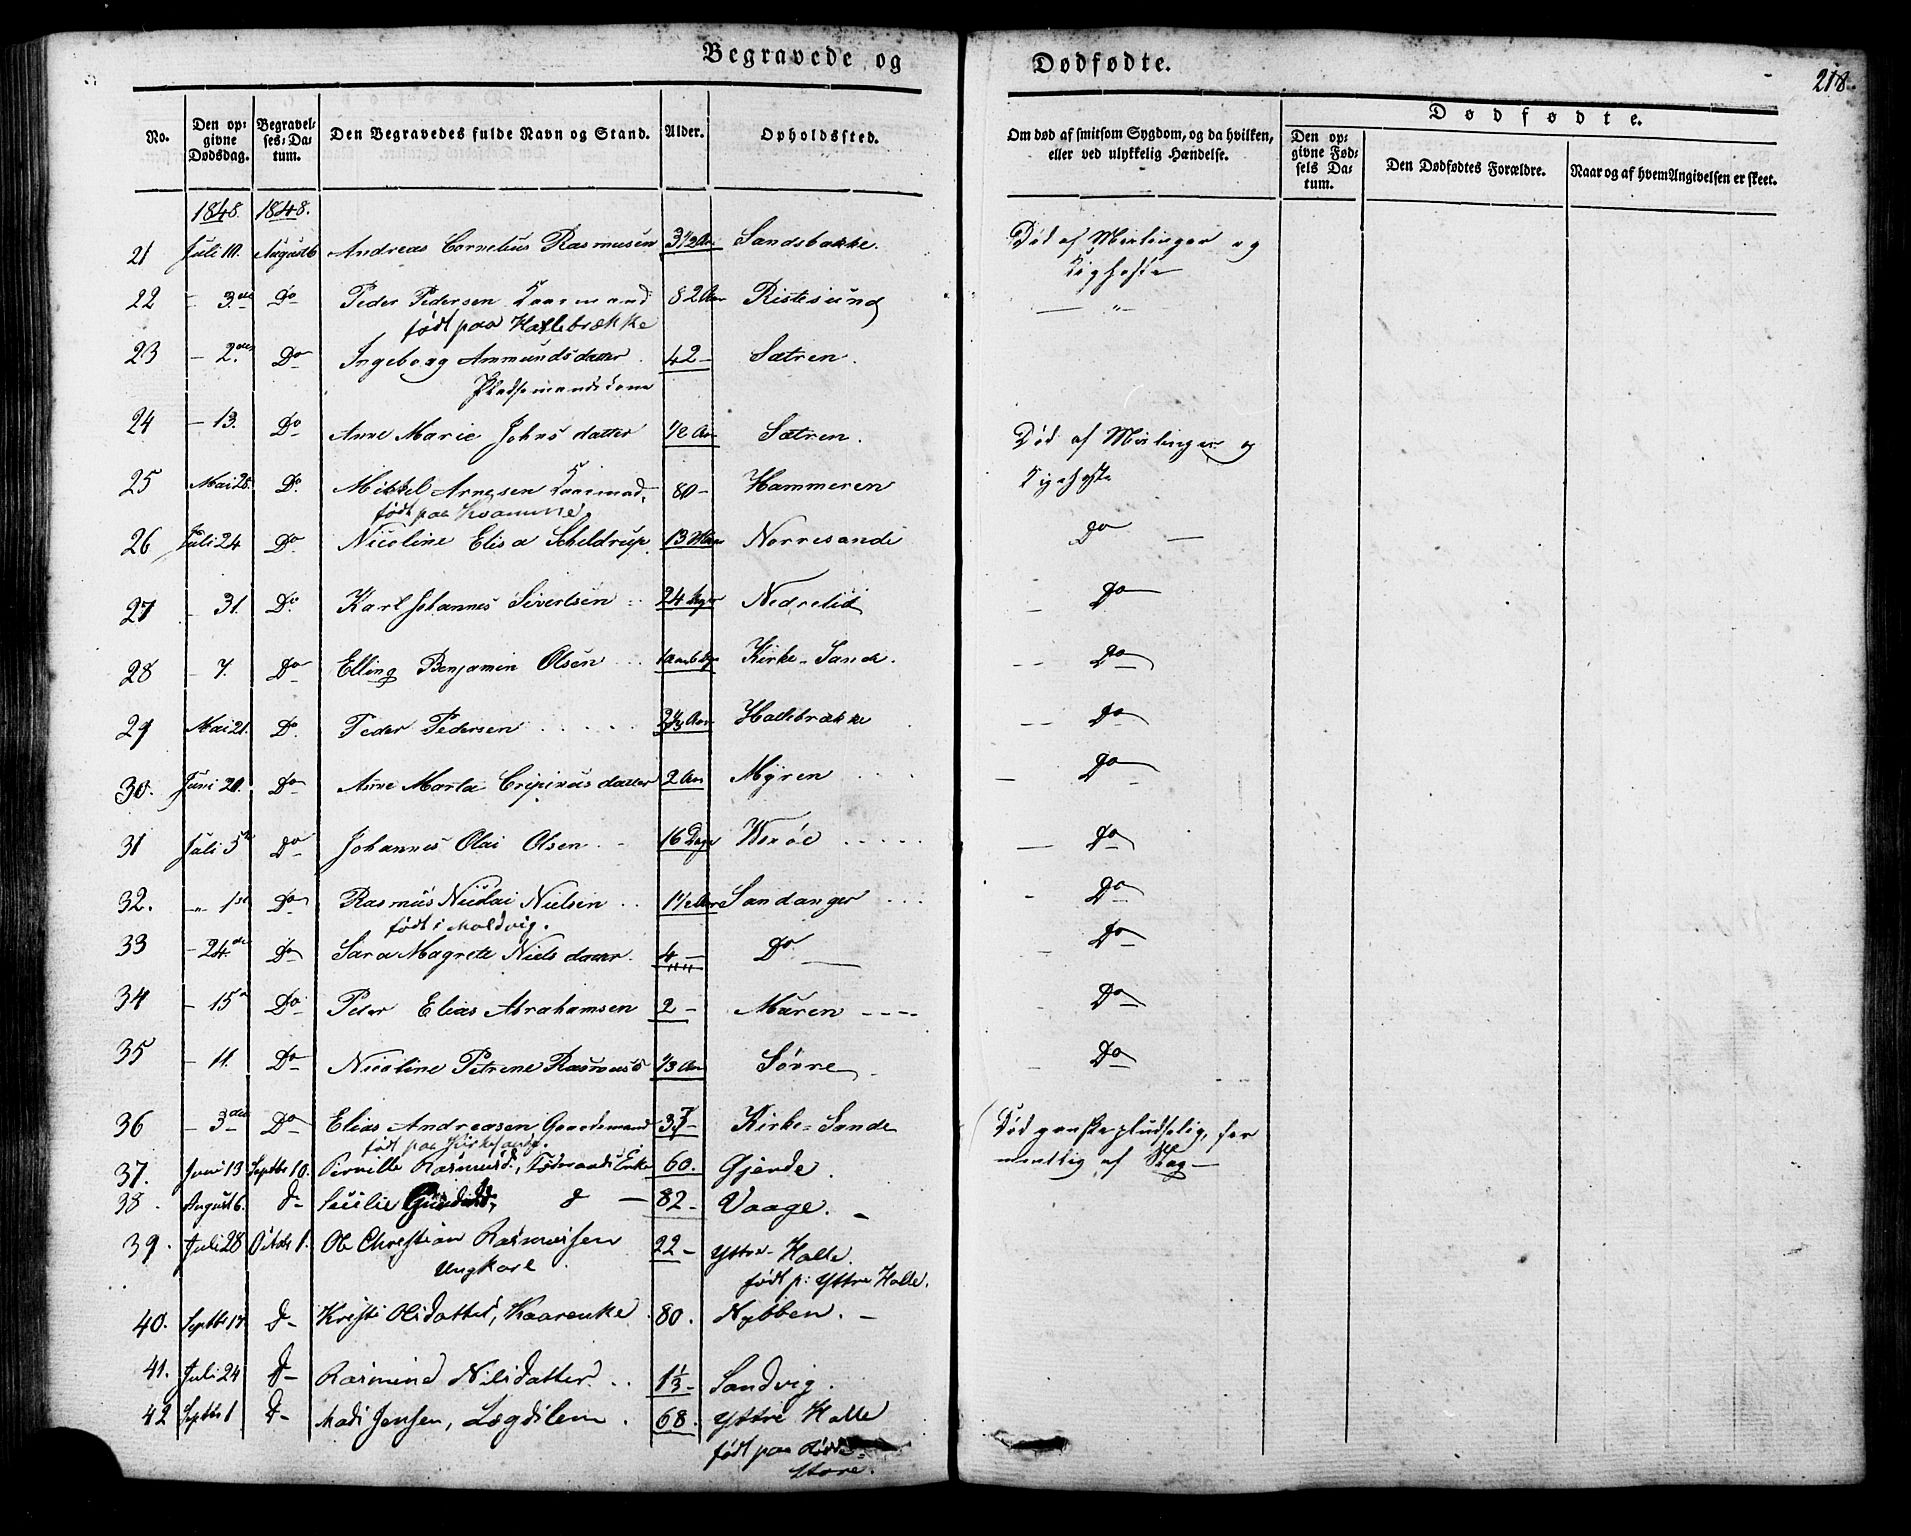 Begravede og Dødfødte.
218.
No. Den opgivne Dødsdag. Begravelses-Datum. Den Begravedes fulde Navn og Stand. Alder. Opholdssted. Om død af smitsom Sygdom, og da hvilken, eller ved ulykkelig Hændelse. Dødfødte. Den opgivne Fødsels Datum. Den Dødfødtes Forældre. Naar og af hvem Angivelsen er skeet.
1848. 1848.
21 Juli 10. August 6 Andreas Cornelius Rasmusen 3 1/2 Aar Sandsbakke. Død af Mæslinger og
Kighoste
22 – 3die Do Peder Pedersen Kaarmand 82 Aar Ristesund – „ –
født paa Hatlebrække
23 – 2den Do Ingeborg Ammundsdatter 42 – Sætren.
Pladsemandskone
24 – 13. Do Anne Marie Johnsdatter 1/2 Aar Sætren. Død af Mæslinger og
Kighoste
25 Mai 28. Do Mikkel Arnesen Kaarmand, 80 – Hammeren
født paa Kvamme.
26 Juli 24 Do Nicoline Elisa Scheldrup 13 Norresande Do –
27 – 31. Do Karl Johannes Sivertsen 24 Nedrelid – Do
28 – 7. Do Elling Benjamin Olsen Kirke-Sande. – Do
29 Mai 21. Do Peder Pedersen 2 1/2 Aar Hatlebrække – Do
30. Juni 20. Do Anne Marta Cripinusdatter 2 Aar Myren – Do
31 Juli 5te Do Johannes Olai Olsen 16 Dage – Do
32. „ 1ste Do Rasmus Nicolai Nielsen 1 1/2 Aar Sandanger – Do
født i Moldvig.
33 – 24de Do Sara Magrete Nielsdatter. 4 – Do – Do
34 – 15 Do Peder Elias Abrahamsen 2 – Muren – Do
35 – 11. Do Nicoline Petrene Rasmusd 1/3 Aar Sørre Do
36 – 3die Do Elias Andreasen Gaardmand 37 – Kirke-Sande Død ganske pludselig, for
født paa Kirkesande. mentlig af Slag –
37. Juni 13 Septbr 10. Pernille Rasmusd., Føderaads Enke 60. Gjerde.
38. August 6. d – Cecilie d – 82 – Vaage. –
39. Juli 28 Octobr 1. Ole Christian Rasmussen 22 – Yttre-Halle.
Ungkarl født p: Yttre Halle.
40. Septbr 17. d – Kristi Olsdatter, Kaarenke 80. Nybben. –
41. Juli 24 d – Rasmine Nilsdatter. 1 1/3 – Sandvig.
42 Septbr 1 d – Mads Jensen, Lægdslem 68. Yttre Halle
født paa
Støre.